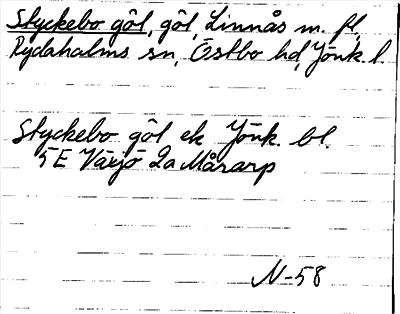 Styckebo göl, göl, Linnås m. fl.,
Rydaholms sn, Östbo hd, Jönk. l.
Styckebo göl ek Jönk. bl.
5E Växjö 2a Mårarp
N-58